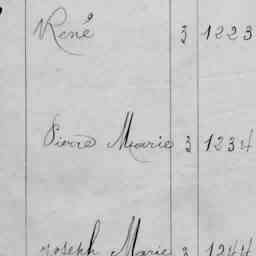 René 3 1223
Pierre Marie 3 1234
Joseph Marie 3 1244